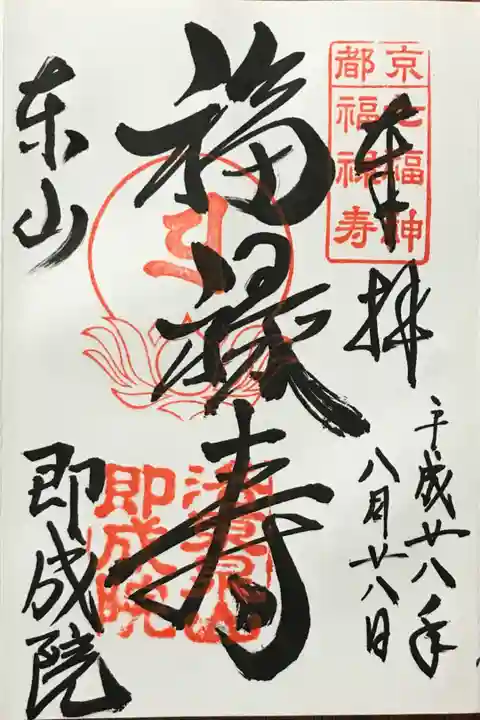 京七福神
都福禄寿
奉拝
平成廿八年
八月廿八日
福禄寿
東山
即成院
即成院